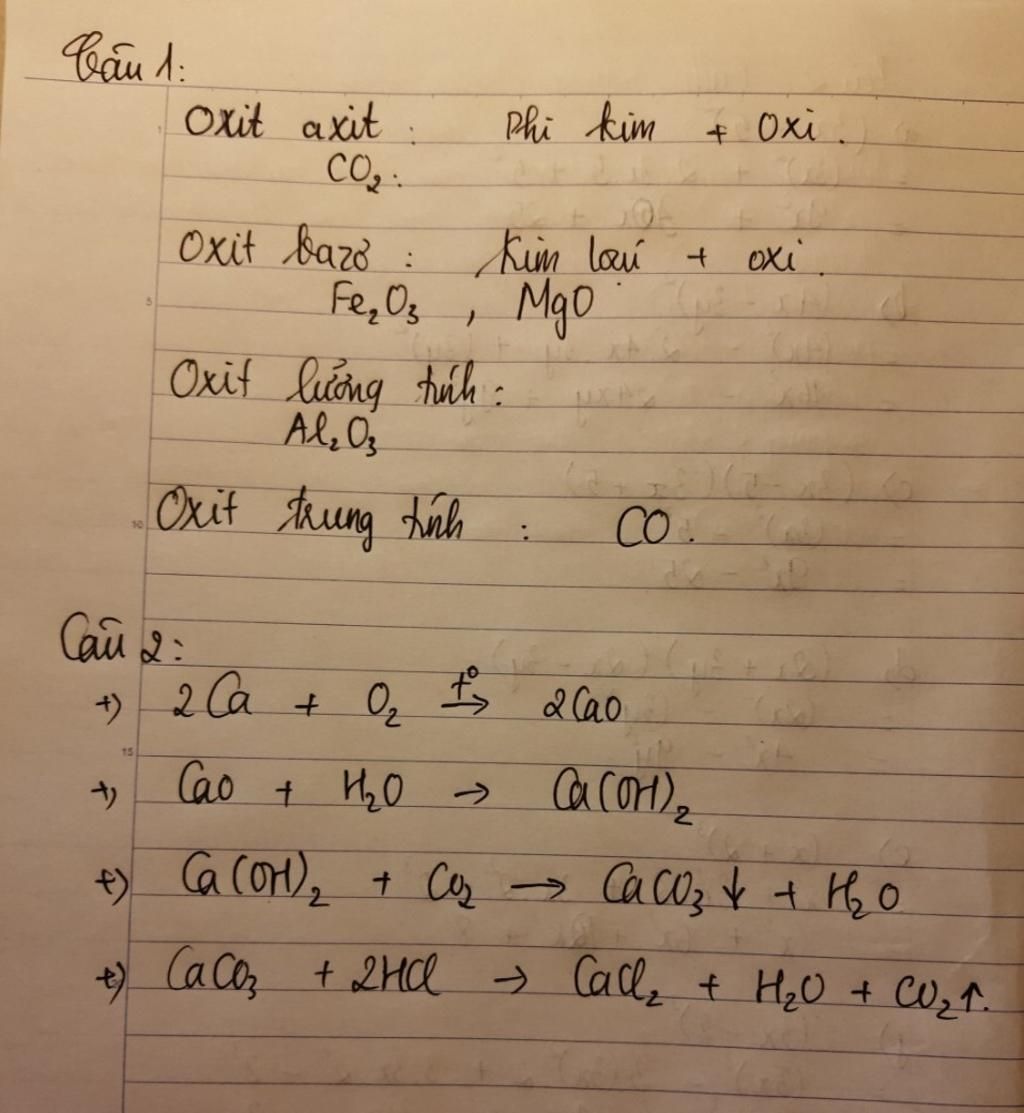 Câu 1:
Oxit axit : Phi kim + Oxi.
CO₂:
Oxit bazơ : Kim loại + oxi.
Fe₂O₃ , MgO
Oxit lưỡng tính :
Al₂O₃
Oxit trung tính : CO.
Câu 2:
+) 2Ca + O₂ t° → 2CaO
+) CaO + H₂O → Ca(OH)₂
+) Ca(OH)₂ + CO₂ → CaCO₃↓ + H₂O
+) CaCO₃ + 2HCl → CaCl₂ + H₂O + CO₂↑.